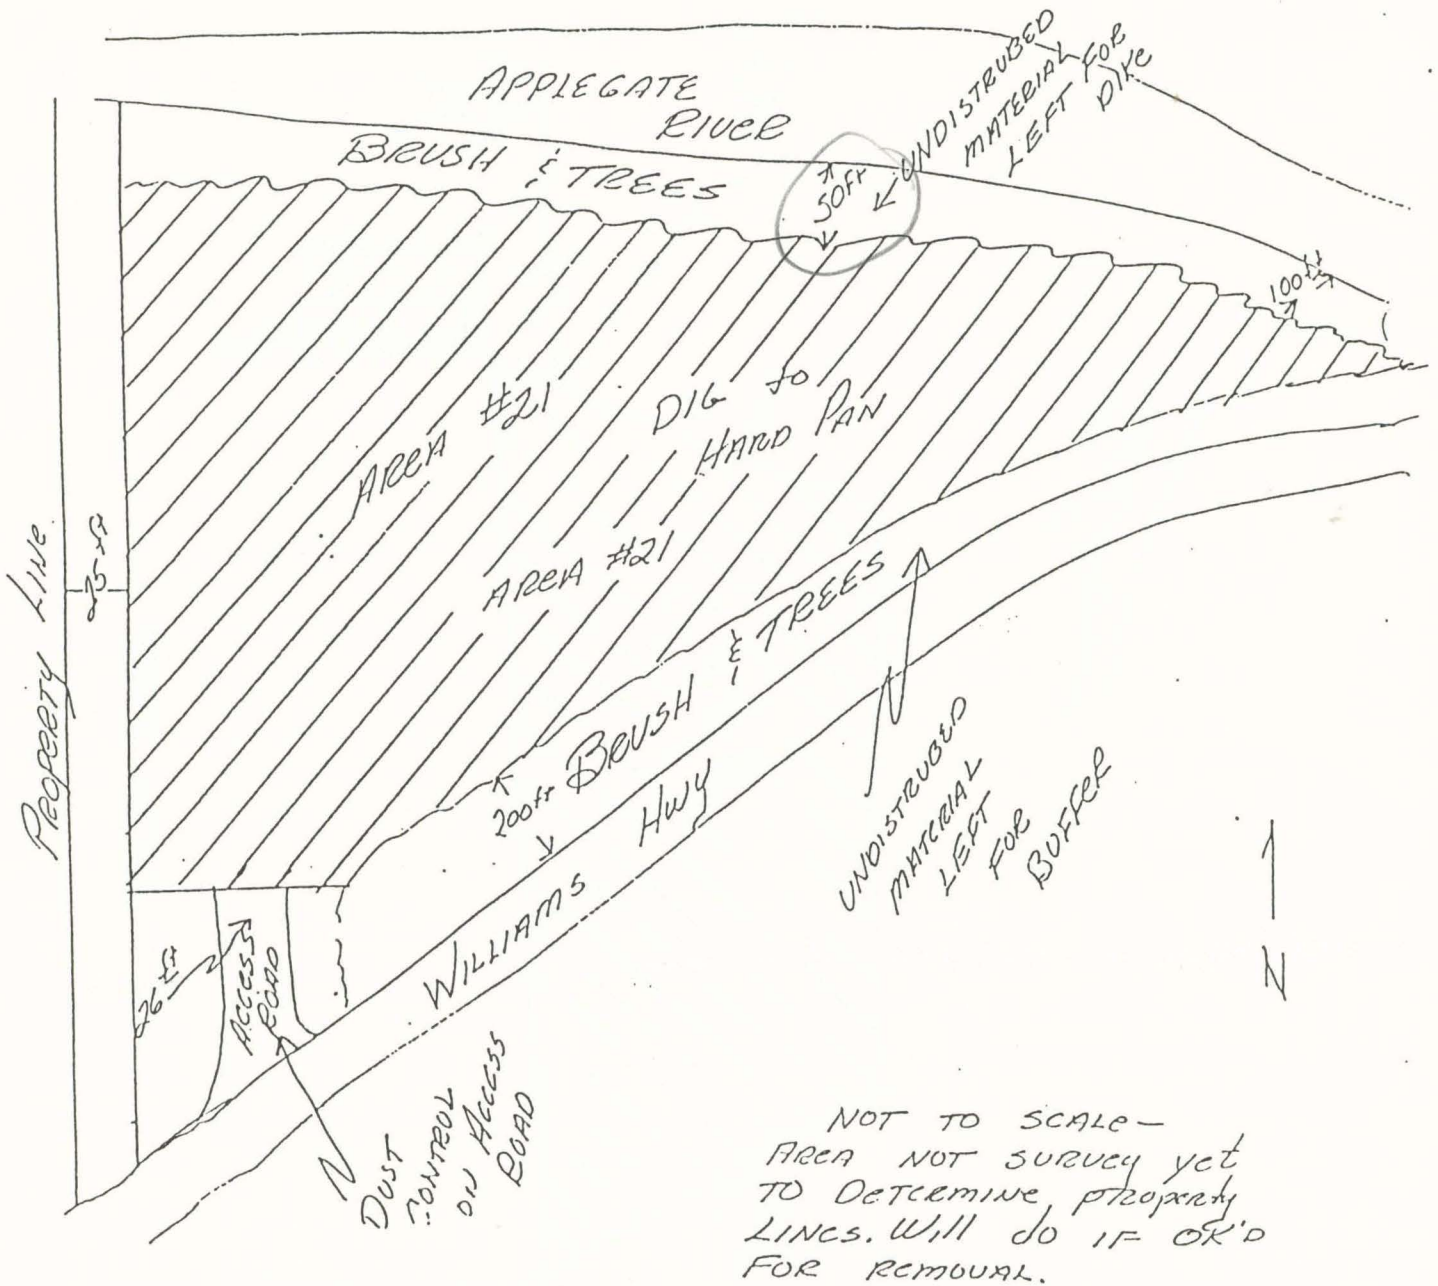 APPLEGATE
RIVER
UNDISTRUBED
MATERIAL
LEFT FOR
DIKE
BRUSH & TREES
50FT
100ft
AREA #21
DIG to
HARD PAN
AREA #21
Property Line
25 ft
BRUSH & TREES
200FT
WILLIAMS HWY
UNDISTRUBED
MATERIAL
LEFT
FOR
BUFFER
26 ft
ACCESS
ROAD
DUST
CONTROL
ON ACCESS
ROAD
N
NOT TO SCALE—
AREA NOT SURVEY yet
TO DETERMINE property
LINES. Will do IF OK'D
FOR REMOVAL.